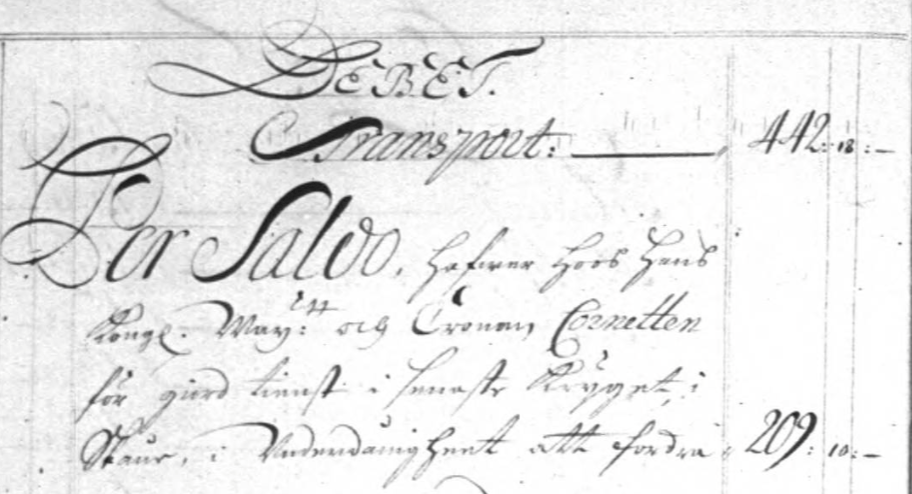 DEBET.
Transport: 442: 18: —
Per Saldo, hafwer hoos Hans
Kongl. May:tt och Cronan Cornetten
för giord tienst i senaste Kryget, i
Skåne, i Underdånigheet att fordra 209: 10: —